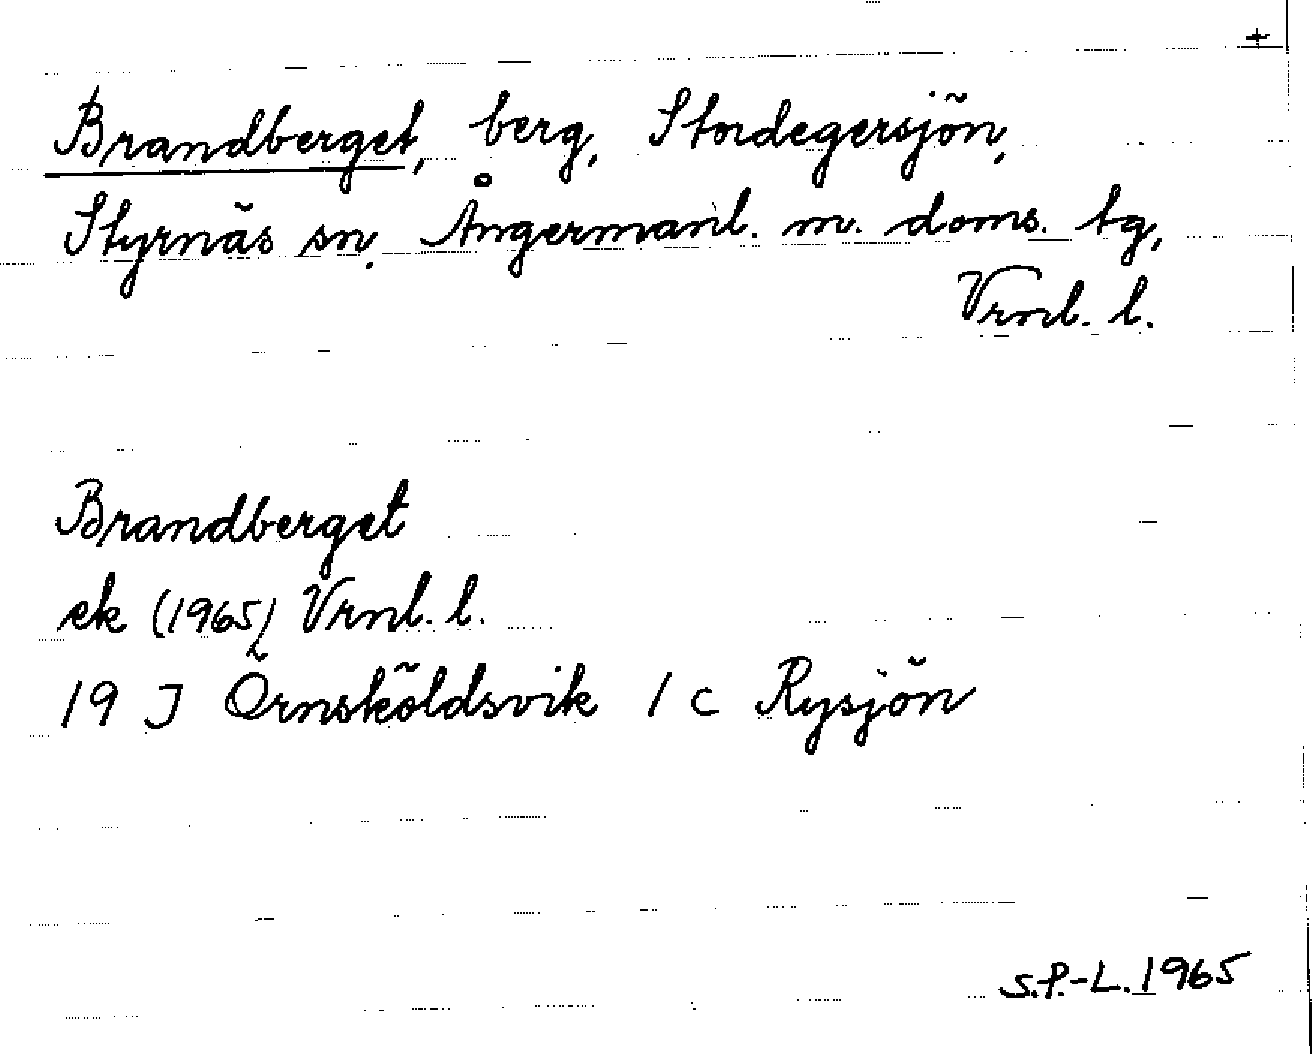 +
Brandberget, berg, Stordegersjön,
Styrnäs sn. Ångermanl. m. doms. tg,
Vrnl. l.
Brandberget
ek (1965) Vrnl. l.
19 J Örnsköldsvik 1 c Rysjön
S.P.-L. 1965